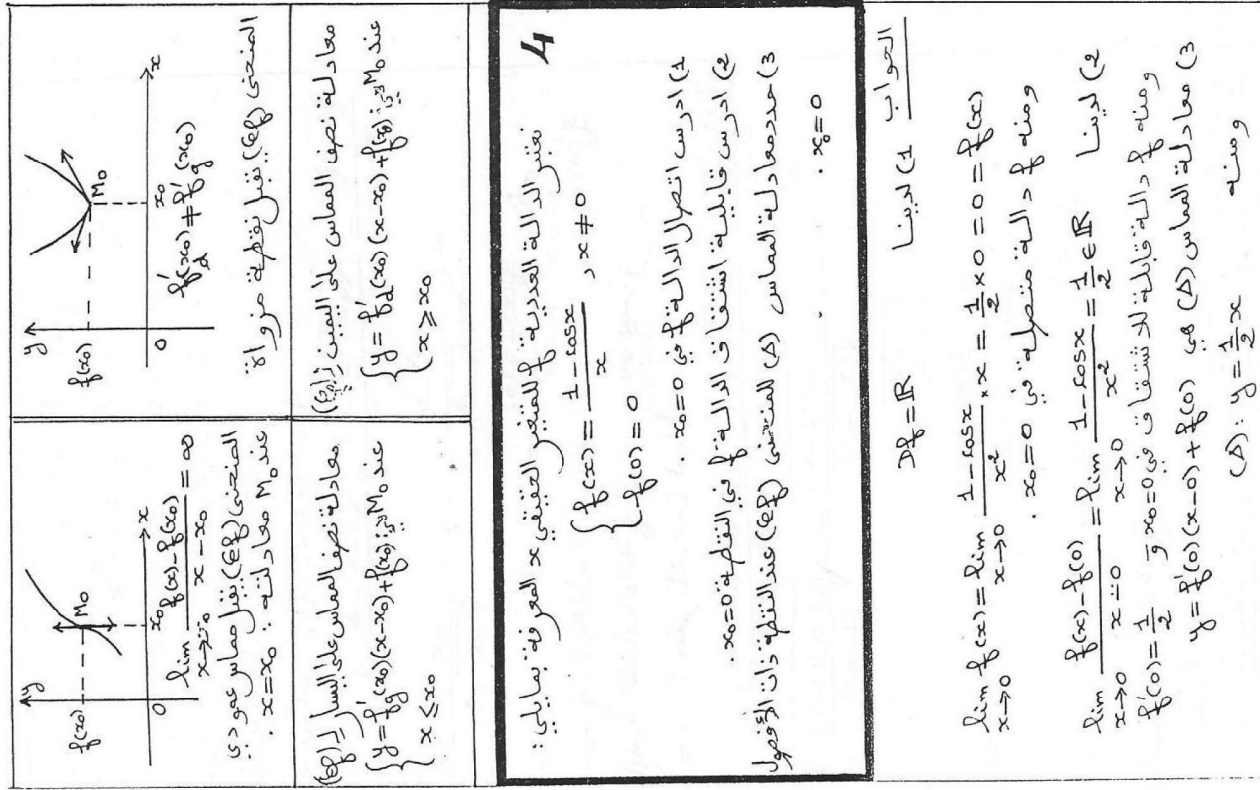 y
f(x₀)
M₀
0
x₀
x
lim f(x)-f(x₀) / x-x₀ = ∞
x→x₀
المنحنى (Cf) يقبل مماس عمودي
عند M₀ معادلته : x=x₀ .
y
f(x₀)
M₀
0
x₀
x
f'd(x₀) ≠ f'g(x₀)
المنحنى (Cf) يقبل نقطة مزواة
معادلة نصف المماس على اليسار لـ (Cf)
عند M₀ هي:
{ y = f'g(x₀)(x-x₀)+f(x₀)
x ≤ x₀
معادلة نصف المماس على اليمين لـ (Cf)
عند M₀ هي:
{ y = f'd(x₀)(x-x₀)+f(x₀)
x ≥ x₀
4
نعتبر الدالة العددية f للمتغير الحقيقي x المعرفة بمايلي :
{ f(x) = 1-cosx / x , x ≠ 0
f(0) = 0
1) ادرس اتصال الدالة f في x₀=0 .
2) ادرس قابلية اشتقاق الدالة f في النقطة x₀=0 .
3) حدد معادلة المماس (Δ) للمنحنى (Cf) عند النقطة ذات الأفصول
x₀=0 .
الجواب
1) لدينا Df = ℝ
lim f(x) = lim 1-cosx / x² × x = 1/2 × 0 = 0 = f(x)
x→0 x→0
ومنه f دالة متصلة في x₀=0 .
2) لدينا lim f(x)-f(0) / x-0 = lim 1-cosx / x² = 1/2 ∈ ℝ
x→0 x→0
ومنه f دالة قابلة للاشتقاق في x₀=0 و f'(0) = 1/2
3) معادلة المماس (Δ) هي y = f'(0)(x-0) + f(0)
ومنه (Δ): y = 1/2 x